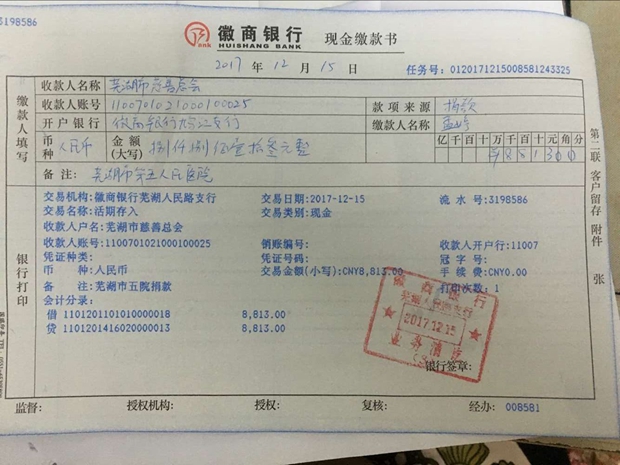 3198586
徽商银行 现金缴款书
HUISHANG BANK
2017 年 12 月 15 日 任务号: 0120171215008581243325
缴款人填写
收款人名称 芜湖市慈善总会
收款人账号 1100701021000100025 款项来源 捐款
开户银行 缴款人名称
币种 人民币 金额(大写) 捌仟捌佰壹拾叁元整 亿 千 百 十 万 千 百 十 元 角 分
¥ 8 8 1 3 0 0
备注: 芜湖市第五人民医院
第二联 客户留存 附件 张
银行打印
交易机构:徽商银行芜湖人民路支行 交易日期:2017-12-15 流水号:3198586
交易名称:活期存入 交易类别:现金
收款人户名:芜湖市慈善总会
收款人账号:1100701021000100025 销账编号: 收款人开户行:11007
凭证种类: 凭证号码: 冠字号:
币 种:人民币 交易金额(小写):CNY8,813.00 手续费:CNY0.00
备 注:芜湖市五院捐款 打印次数:1
会计分录:
借 1101201101010000018 8,813.00
贷 1101201416020000013 8,813.00
徽商银行
芜湖人民路支行
2017.12.15
业务清讫
(3)
银行签章:
监督: 授权机构: 授权: 复核: 经办: 008581